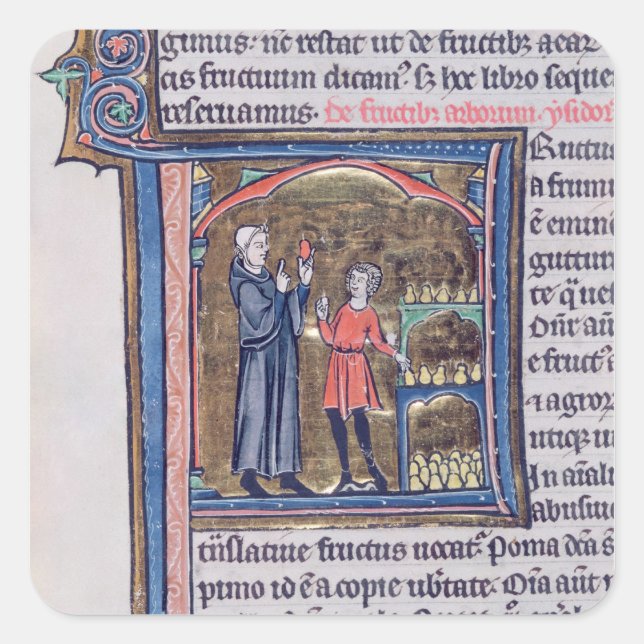 gimus: nc restat ut de fructibꝫ a ear
cis fructuum dicam⁹. sꝫ hoc libro seque
reseruamus. De fructibꝫ arborum. ysidor
Ructus
a frum
ē emine
guttur
te q̄ uel
Dn̄r aū
e fruct⁹
⁊ agror
utiq̄ u
In aīali
abusiue
fructus uocat᷒. Poma dc̄a s
pimo id ē a copie ub̄tate. Oīa aūt